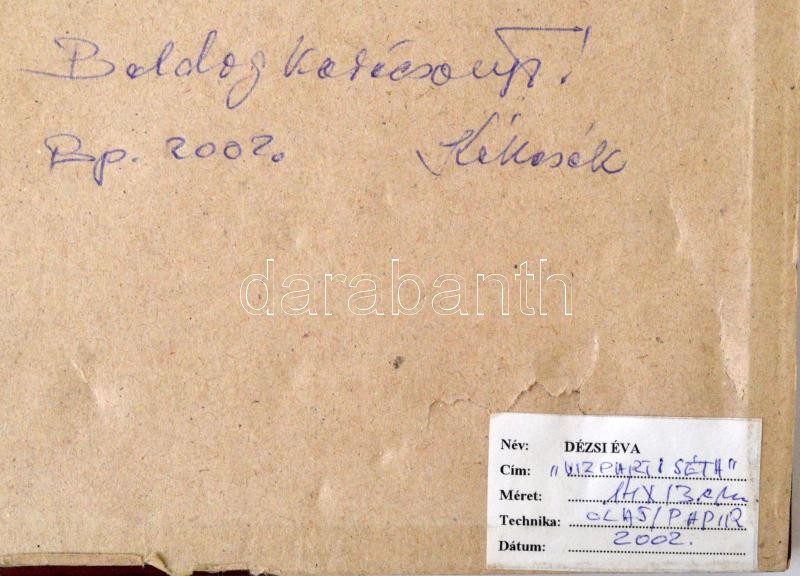 Boldog karácsonyt!
Bp. 2002.
Kékesék
darabanth
Név: DÉZSI ÉVA
Cím: "VIZPARTI SÉTA"
Méret: 14X13 cm.
Technika: OLAJ/PAPIR
Dátum: 2002.